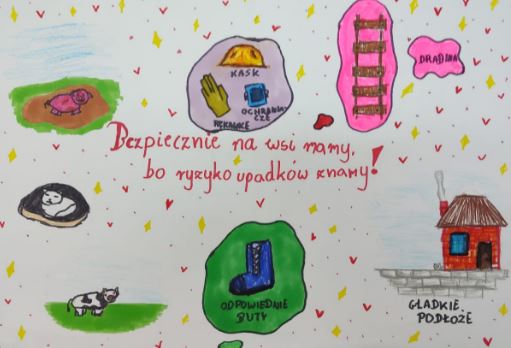 KASK
OCHRANIA
CZE
RĘKAWICE
DRABINA
Bezpiecznie na wsi mamy,
bo ryzyko upadków znamy!
ODPOWIEDNIE
BUTY
GŁADKIE
PODŁOŻE